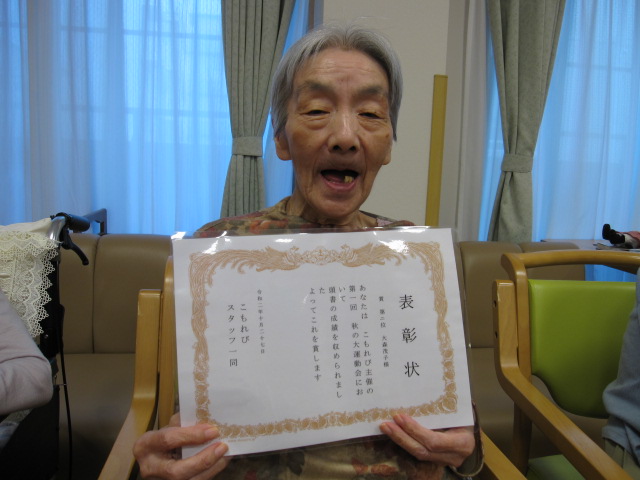 表彰状
賞 第二位 大森茂子様
あなたは こもれび主催の
第一回 秋の大運動会にお
いて
頭書の成績を収められまし
た
よってこれを賞します
令和二年十月二十七日
こもれび
スタッフ一同